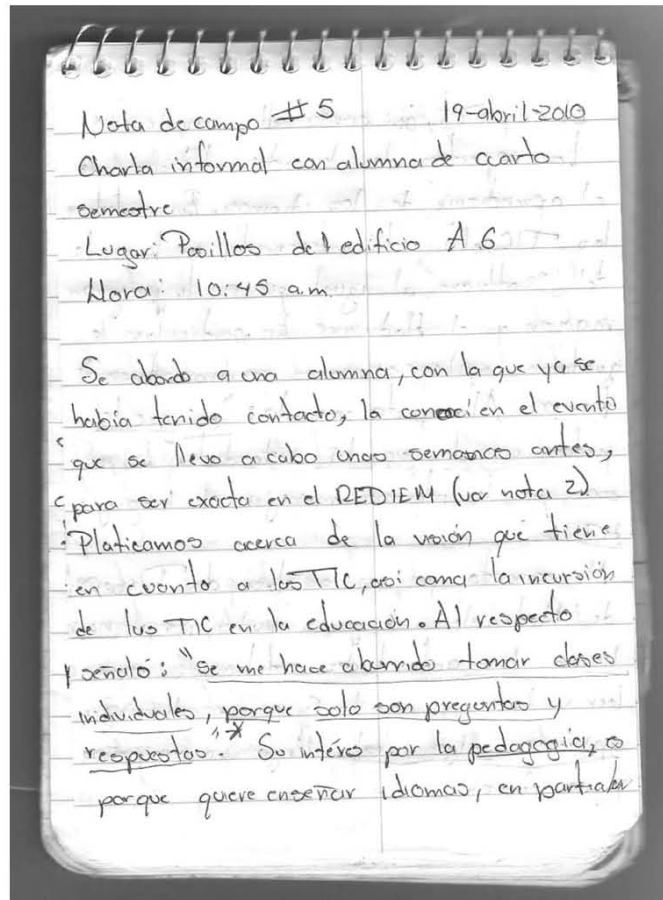 Nota de campo #5 19-abril-2010
Charla informal con alumna de cuarto
semestre
Lugar: Pasillos del edificio A 6
Hora: 10:45 a.m.
Se abordo a una alumna, con la que ya se
había tenido contacto, la conoci en el evento
que se llevo a cabo unas semanas antes,
para ser exacta en el REDIEM (ver nota 2)
Platicamos acerca de la visión que tiene
en cuanto a las TIC, asi como la incursión
de las TIC en la educación. Al respecto
señaló: "Se me hace aburrido tomar clases
individuales, porque solo son preguntas y
respuestas".* Su intéres por la pedagogia, es
porque quiere enseñar idiomas, en particular